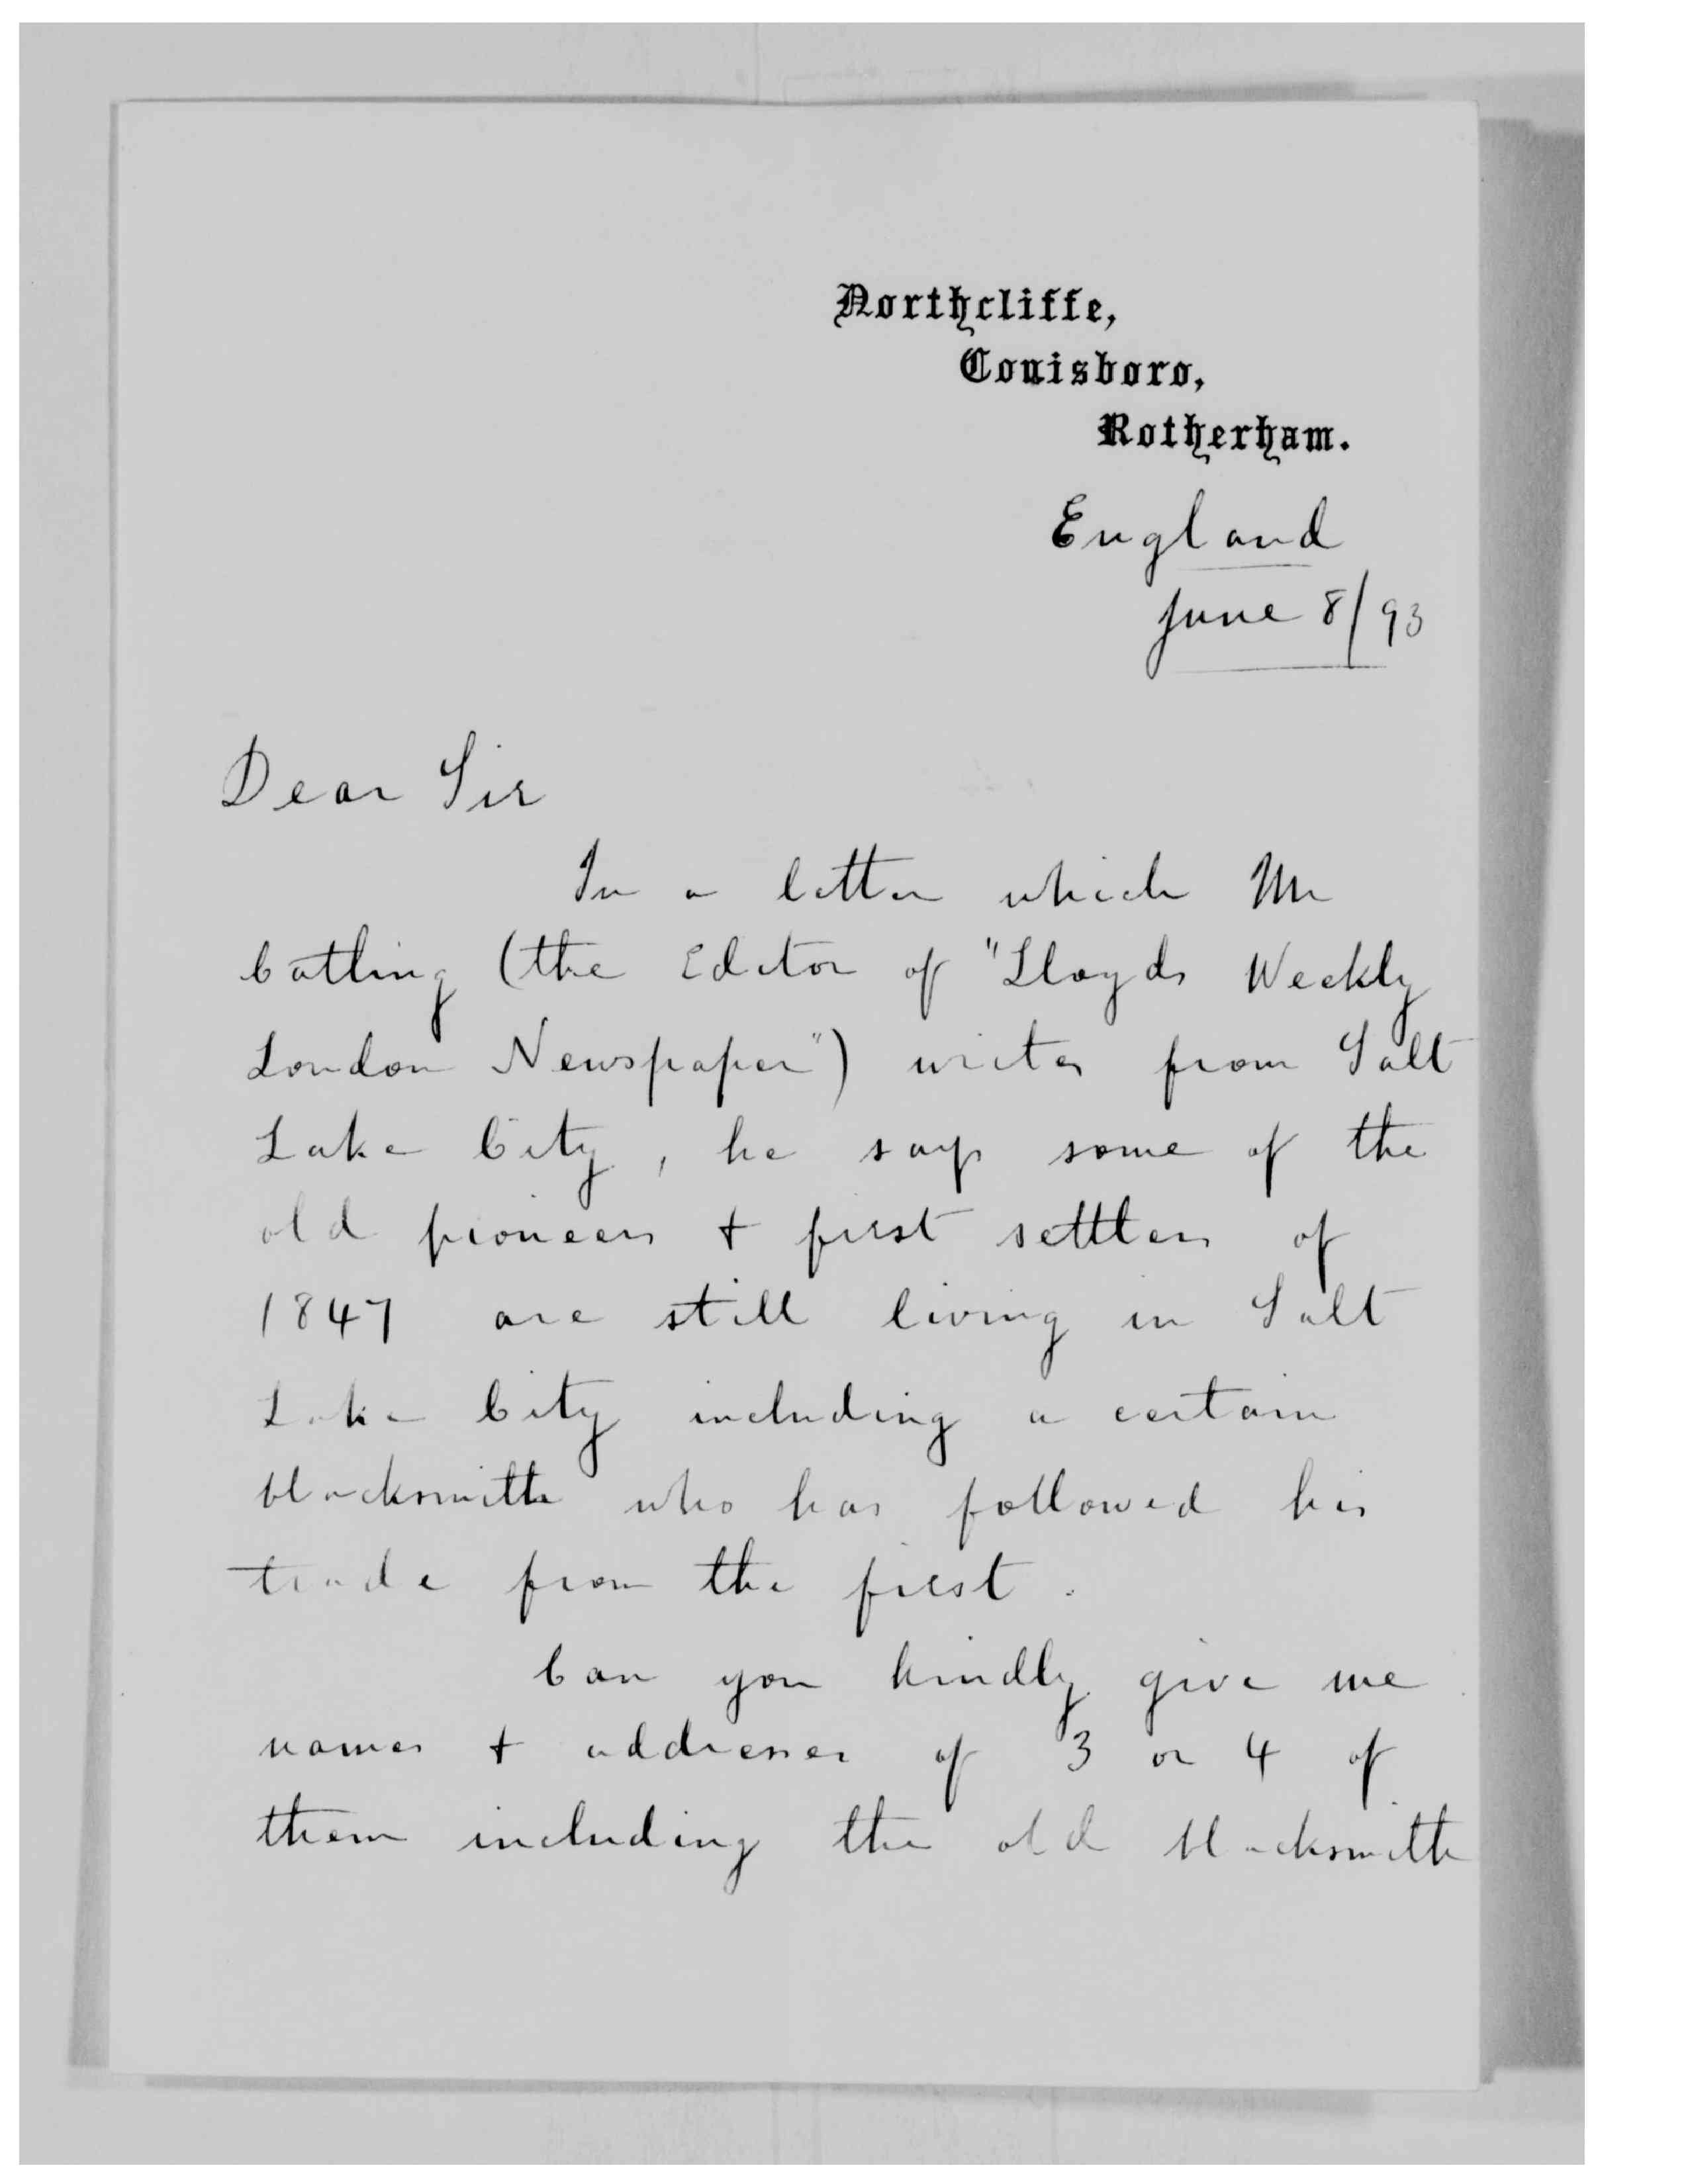 Northcliffe,
Conisboro,
Rotherham.
England
June 8/93
Dear Sir
In a letter which Mr
Catling (the Editor of "Lloyds Weekly
London Newspaper") writes from Salt
Lake City, he says some of the
old pioneers + first settlers of
1847 are still living in Salt
Lake City including a certain
blacksmith who has followed his
trade from the first.
Can you kindly give me
names + addresses of 3 or 4 of
them including the old blacksmith